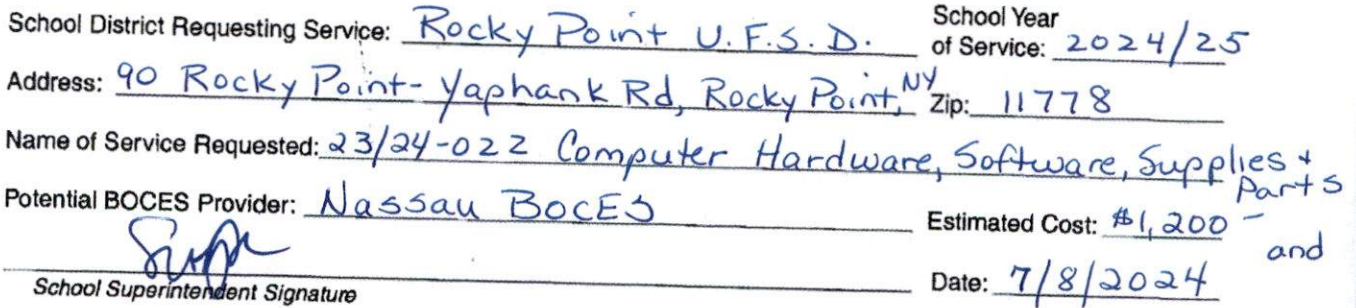 School District Requesting Service: Rocky Point U.F.S.D. School Year of Service: 2024/25
Address: 90 Rocky Point-Yaphank Rd, Rocky Point, NY Zip: 11778
Name of Service Requested: 23/24-022 Computer Hardware, Software, Supplies + Parts
Potential BOCES Provider: Nassau BOCES Estimated Cost: $1,200 - and
School Superintendent Signature Date: 7/8/2024